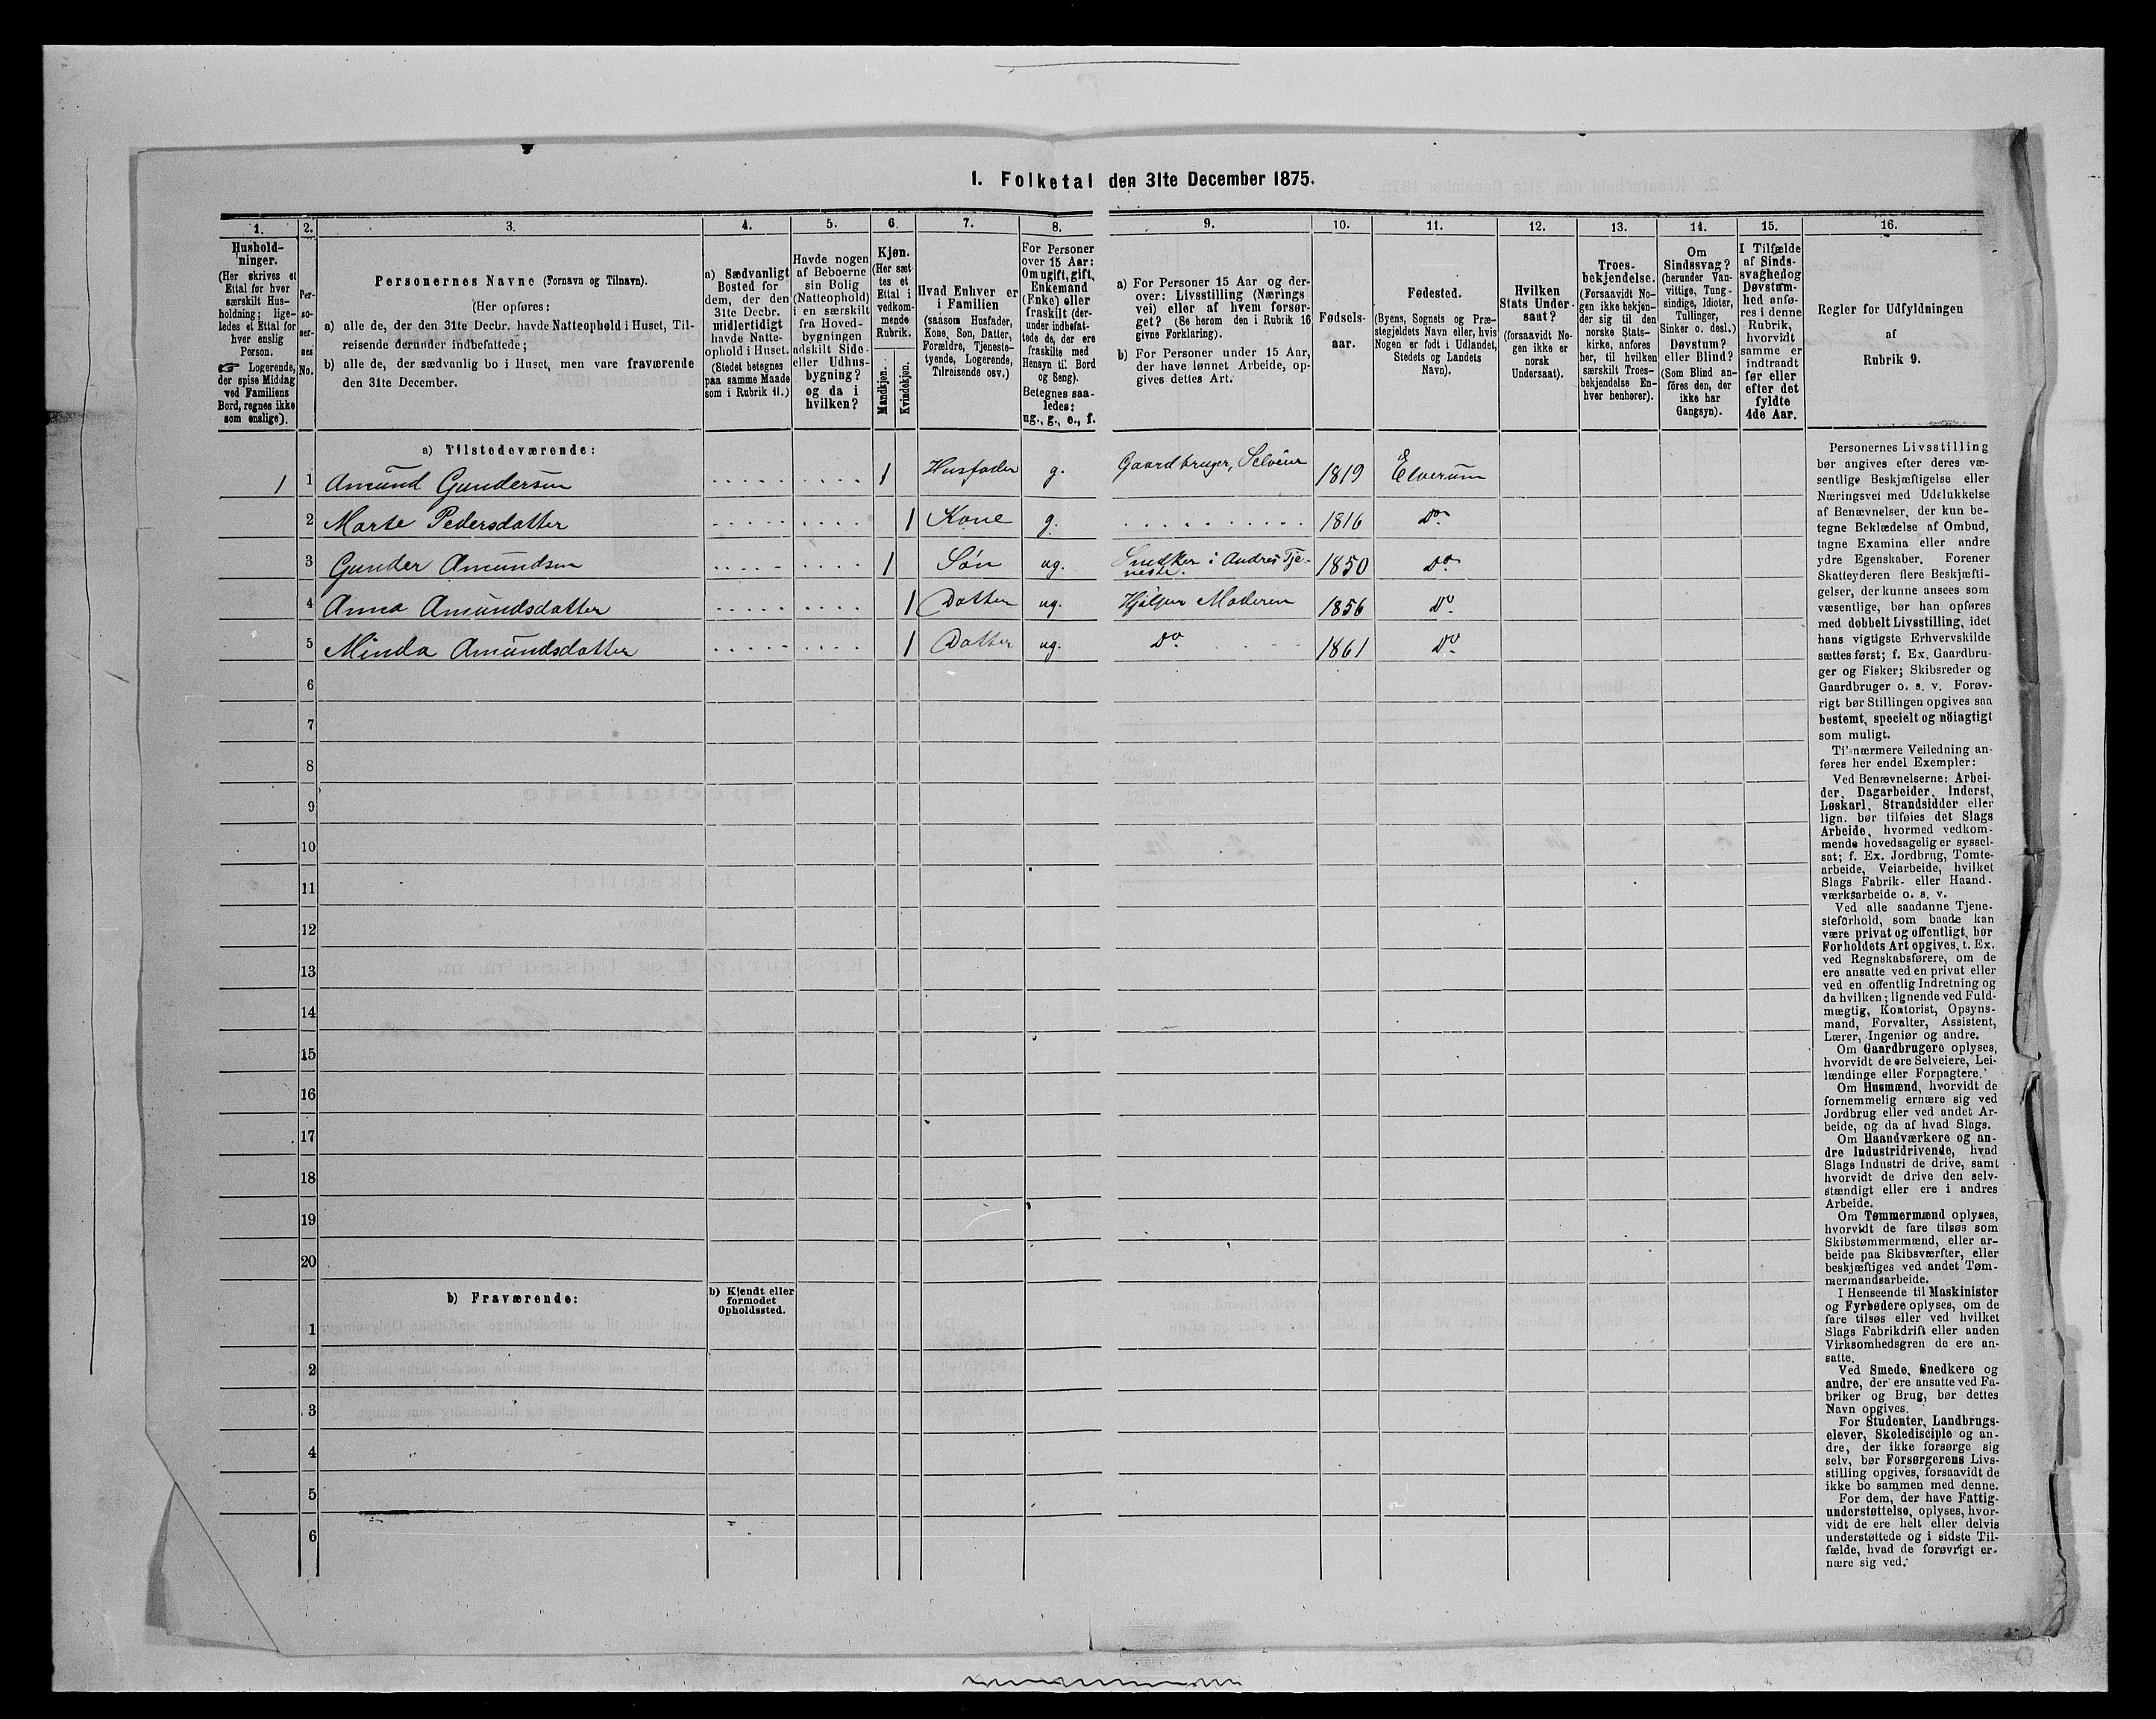 1. Folketal den 31te December 1875.
1.
2.
3.
4.
5.
6.
7.
8.
9.
10.
11.
12.
13.
14.
15.
16.
Hushold-
ninger.
(Her skrives et
Ettal for hver
særskilt Hus-
holdning; lige-
ledes et Ettal for
hver enslig
Person.
☞ Logerende,
der spise Middag
ved Familiens
Bord, regnes ikke
som enslige).
Per-
so-
ner-
nes
No.
Personernes Navne (Fornavn og Tilnavn).
(Her opføres:
a) alle de, der den 31te Decbr. havde Natteophold i Huset, Til-
reisende derunder indbefattede;
b) alle de, der sædvanlig bo i Huset, men vare fraværende
den 31te December.
a) Sædvanligt
Bosted for
dem, der den
31te Decbr.
midlertidigt
havde Natte-
ophold i Huset.
(Stedet betegnes
paa samme Maade
som i Rubrik 11.)
Havde nogen
af Beboerne
sin Bolig
(Natteophold)
i en særskilt
fra Hoved-
bygningen
adskilt Side-
eller Udhus-
bygning?
og da i
hvilken?
Kjøn.
(Her sæt-
tes et
Ettal i
vedkom-
mende
Rubrik.
Mandkjøn.
Kvindekjøn.
Hvad Enhver er
i Familien
(saasom Husfader,
Kone, Søn, Datter,
Forældre, Tjeneste-
tyende, Logerende,
Tilreisende osv.)
For Personer
over 15 Aar:
Om ugift, gift,
Enkemand
(Enke) eller
fraskilt (der-
under indbefat-
tede de, der ere
fraskilte med
Hensyn til Bord
og Seng).
Betegnes saa-
ledes:
ug., g., e., f.
a) For Personer 15 Aar og der-
over: Livsstilling (Nærings
vei) eller af hvem forsør-
get? (Se herom den i Rubrik 16
givne Forklaring).
b) For Personer under 15 Aar,
der have lønnet Arbeide, op-
gives dettes Art.
Fødsels-
aar.
Fødested.
(Byens, Sognets og Præ-
stegjeldets Navn eller, hvis
Nogen er født i Udlandet,
Stedets og Landets
Navn).
Hvilken
Stats Under-
saat?
(forsaavidt No-
gen ikke er
norsk
Undersaat).
Troes-
bekjendelse.
(Forsaavidt No-
gen ikke bekjen-
der sig til den
norske Stats-
kirke, anføres
her, til hvilken
særskilt Troes-
bekjendelse En-
hver henhører).
Om
Sindssvag?
(herunder Van-
vittige, Tung-
sindige, Idioter,
Tullinger,
Sinker o. desl.)
Døvstum?
eller Blind?
(Som Blind an-
føres den, der
ikke har
Gangsyn).
I Tilfælde
af Sinds-
svaghed og
Døvstum-
hed anfø-
res i denne
Rubrik,
hvorvidt
samme er
indtraadt
før eller
efter det
fyldte
4de Aar.
Regler for Udfyldningen
af
Rubrik 9.
a) Tilstedeværende:
1 1 Amund Gundersen 1 Husfader g. Gaardbruger, Selveier 1819 Elverum
2 Marte Pedersdatter 1 Kone g. 1816 Do.
3 Gunder Amundsen 1 Søn ug. Snedker i Andres Tje-
neste. 1850 Do.
4 Anna Amundsdatter 1 Datter ug. Hjælper Moderen 1856 Do.
5 Minda Amundsdatter 1 Datter ug. Do. 1861 Do.
6
7
8
9
10
11
12
13
14
15
16
17
18
19
20
b) Fraværende:
b) Kjendt eller
formodet
Opholdssted.
1
2
3
4
5
6
Personernes Livsstilling
bør angives efter deres væ-
sentlige Beskjæftigelse eller
Næringsvei med Udelukkelse
af Benævnelser, der kun be-
tegne Beklædelse af Ombud,
tagne Examina eller andre
ydre Egenskaber. Forener
Skatteyderen flere Beskjæfti-
gelser, der kunne ansees som
væsentlige, bør han opføres
med dobbelt Livsstilling, idet
hans vigtigste Erhvervskilde
sættes først; f. Ex. Gaardbru-
ger og Fisker; Skibsreder og
Gaardbruger o. s. v. Forøv-
rigt bør Stillingen opgives saa
bestemt, specielt og nöiagtigt
som muligt.
Ti' nærmere Veiledning an-
føres her endel Exempler:
Ved Benævnelserne: Arbei-
der, Dagarbeider, Inderst,
Løskarl, Strandsidder eller
lign. bør tilføies det Slags
Arbeide, hvormed vedkom-
mende hovedsagelig er syssel-
sat; f. Ex. Jordbrug, Tomte-
arbeide, Veiarbeide, hvilket
Slags Fabrik- eller Haand-
værksarbeide o. s. v.
Ved alle saadanne Tjene-
steforhold, som baade kan
være privat og offentligt, bør
Forholdets Art opgives, t. Ex.
ved Regnskabsførere, om de
ere ansatte ved en privat eller
ved en offentlig Indretning og
da hvilken; lignende ved Fuld-
mægtig, Kontorist, Opsyns-
mand, Forvalter, Assistent,
Lærer, Ingeniør og andre.
Om Gaardbrugere oplyses,
hvorvidt de ere Selveiere, Lei-
lændinge eller Forpagtere.
Om Husmænd, hvorvidt de
fornemmelig ernære sig ved
Jordbrug eller ved andet Ar-
beide, og da af hvad Slags.
Om Haandværkere og an-
dre Industridrivende, hvad
Slags Industri de drive, samt
hvorvidt de drive den selv-
stændigt eller ere i andres
Arbeide.
Om Tømmermænd oplyses,
hvorvidt de fare tilsøs som
Skibstømmermænd, eller ar-
beide paa Skibsværfter, eller
beskjæftiges ved andet Tøm-
mermandsarbeide.
I Henseende til Maskinister
og Fyrbødere oplyses, om de
fare tilsøs eller ved hvilket
Slags Fabrikdrift eller anden
Virksomhedsgren de ere an-
satte.
Ved Smede, Snedkere og
andre, der ere ansatte ved Fa-
briker og Brug, bør dettes
Navn opgives.
For Studenter, Landbrugs-
elever, Skoledisciple og an-
dre, der ikke forsørge sig
selv, bør Forsørgerens Livs-
stilling opgives, forsaavidt de
ikke bo sammen med denne.
For dem, der have Fattig-
understøttelse, oplyses, hvor-
vidt de ere helt eller delvis
understøttede og i sidste Til-
fælde, hvad de forøvrigt er-
nære sig ved.